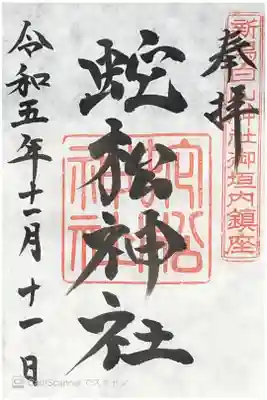 奉拝
新潟白山神社御垣内鎮座
蛇松神社
蛇松神社
令和五年十一月十一日
CamScanner でスキャン